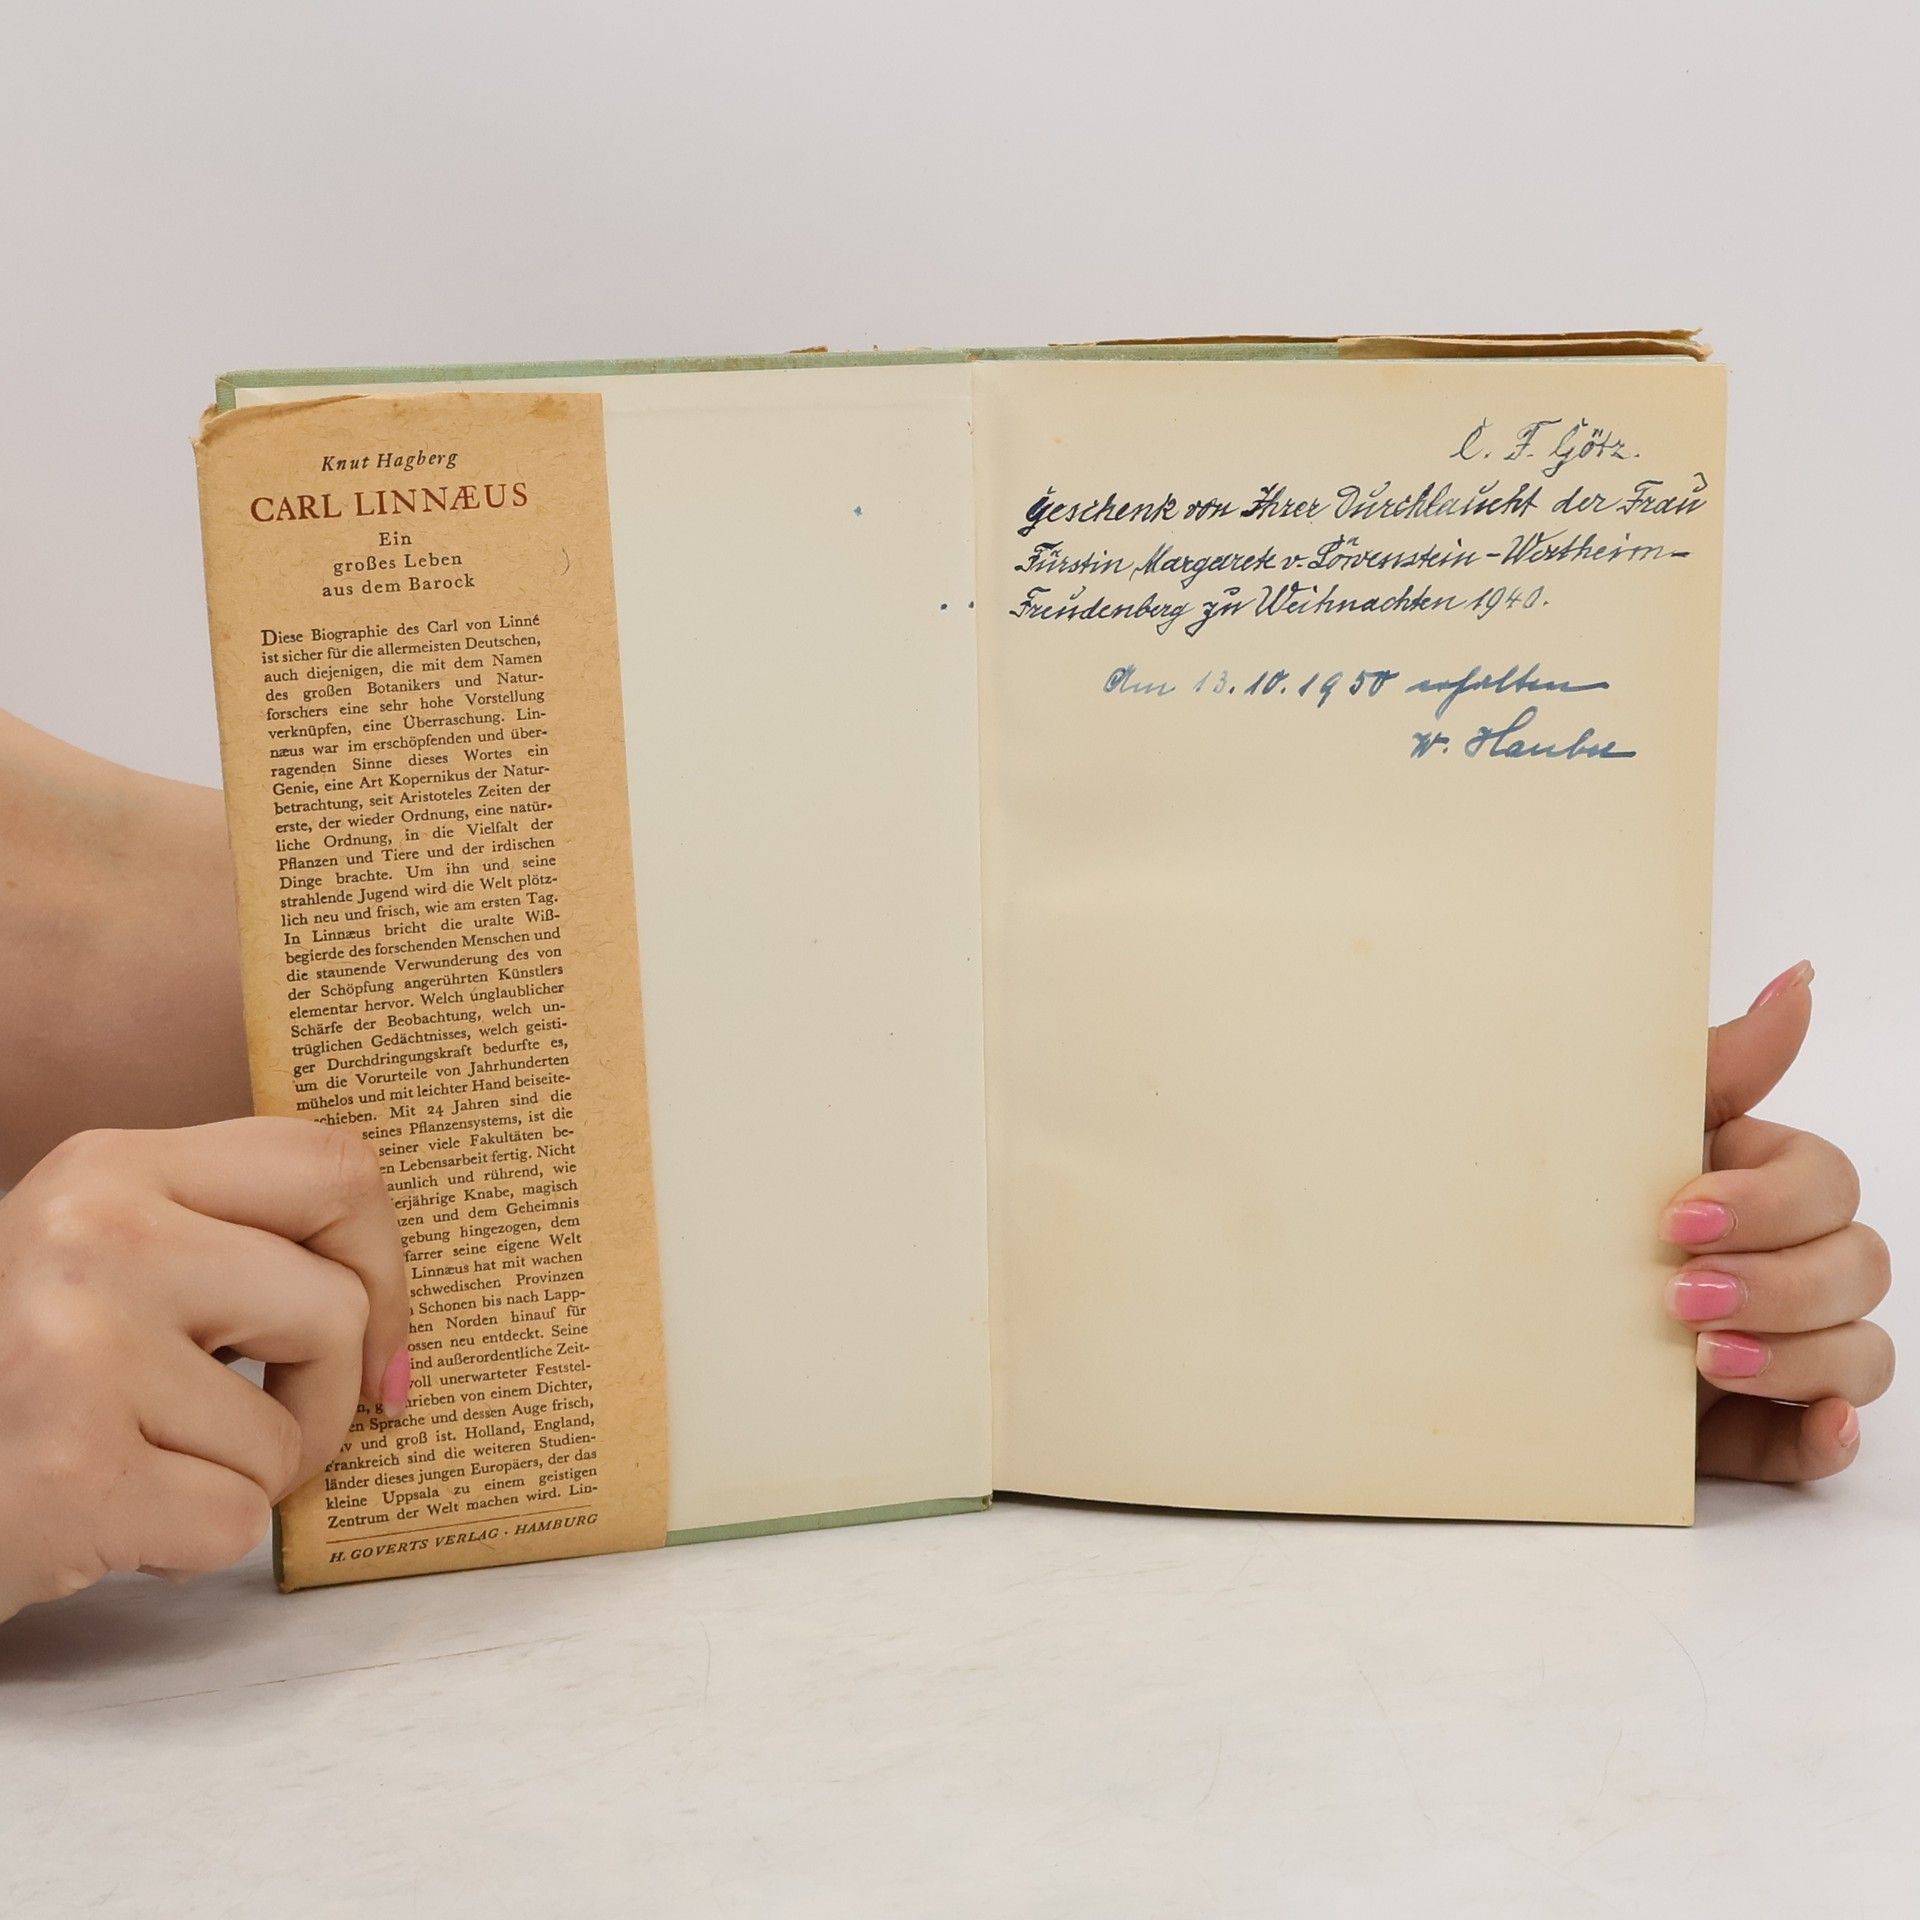 Knut Hagberg
CARL LINNÆUS
Ein
großes Leben
aus dem Barock
Diese Biographie des Carl von Linné
ist sicher für die allermeisten Deutschen,
auch diejenigen, die mit dem Namen
des großen Botanikers und Natur-
forschers eine sehr hohe Vorstellung
verknüpfen, eine Überraschung. Lin-
næus war im erschöpfenden und über-
ragenden Sinne dieses Wortes ein
Genie, eine Art Kopernikus der Natur-
betrachtung, seit Aristoteles Zeiten der
erste, der wieder Ordnung, eine natür-
liche Ordnung, in die Vielfalt der
Pflanzen und Tiere und der irdischen
Dinge brachte. Um ihn und seine
strahlende Jugend wird die Welt plötz-
lich neu und frisch, wie am ersten Tag.
In Linnæus bricht die uralte Wiß-
begierde des forschenden Menschen und
die staunende Verwunderung des von
der Schöpfung angerührten Künstlers
elementar hervor. Welch unglaublicher
Schärfe der Beobachtung, welch un-
trüglichen Gedächtnisses, welch geisti-
ger Durchdringungskraft bedurfte es,
um die Vorurteile von Jahrhunderten
mühelos und mit leichter Hand beiseite-
chieben. Mit 24 Jahren sind die
seines Pflanzensystems, ist die
seiner viele Fakultäten be-
en Lebensarbeit fertig. Nicht
aunlich und rührend, wie
erjährige Knabe, magisch
nzen und dem Geheimnis
gebung hingezogen, dem
farrer seine eigene Welt
Linnæus hat mit wachen
schwedischen Provinzen
Schonen bis nach Lapp-
hen Norden hinauf für
ossen neu entdeckt. Seine
ind außerordentliche Zeit-
voll unerwarteter Feststel-
n, g hrieben von einem Dichter,
en Sprache und dessen Auge frisch,
iv und groß ist. Holland, England,
Frankreich sind die weiteren Studien-
länder dieses jungen Europäers, der das
kleine Uppsala zu einem geistigen
Zentrum der Welt machen wird. Lin-
H. GOVERTS VERLAG · HAMBURG
C. F. Götz.
Geschenk von Ihrer Durchlaucht der Frau
Fürstin Margarete v. Löwenstein-Wertheim-
Freudenberg zu Weihnachten 1940.
Am 13.10.1950 erhalten
W. Hauber